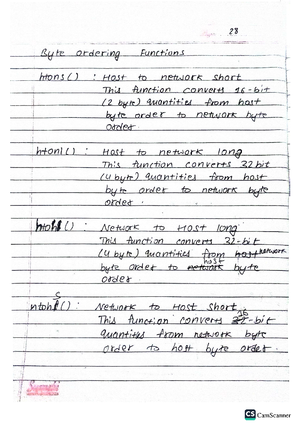 28
Byte ordering Functions
htons() : Host to network short
This function converts 16-bit
(2 byte) quantities from host
byte order to network byte
order
htonl() : Host to network long
This function converts 32 bit
(4 byte) quantities from host
byte order to network byte
order.
Network to Host long
This function converts 32-bit
(4 byte) quantities from host network
byte order to network host byte
order
ntohs() : Network to Host short.
This function converts 16-bit
quantities from network byte
order to host byte order.
CS CamScanner